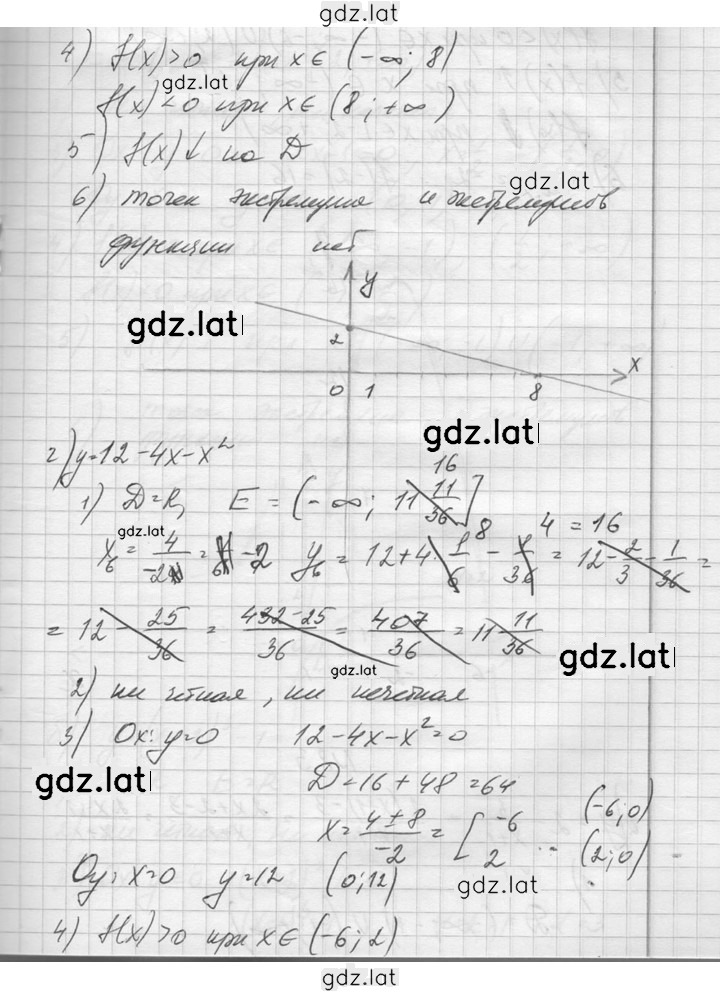 gdz.lat
4) f(x)>0 при x∈ (-∞; 8)
gdz.lat
f(x)<0 при x∈ (8; +∞)
5) f(x)↓ на D
gdz.lat
6) точек экстремума и экстремумов
функции нет
y
gdz.lat
2
x
0 1 8
gdz.lat
г) y=12-4x-x²
16
1) D=R, E = (-∞; 11 11/36]
gdz.lat
x = 4/-2 = -2 y = 12+4· 8 - 4 = 16 = 12 - 2/3 - 1/36 =
= 12 - 25/36 = 432-25/36 = 407/36 = 11 11/36
gdz.lat
gdz.lat
2) ни четная, ни нечетная
3) Ox: y=0 12-4x-x²=0
gdz.lat
D=16+48=64
x = 4±8/-2 = [ -6 2 (-6;0) (2;0)
Oy: x=0 y=12 (0;12)
gdz.lat
4) f(x)>0 при x∈ (-6; 2)
gdz.lat